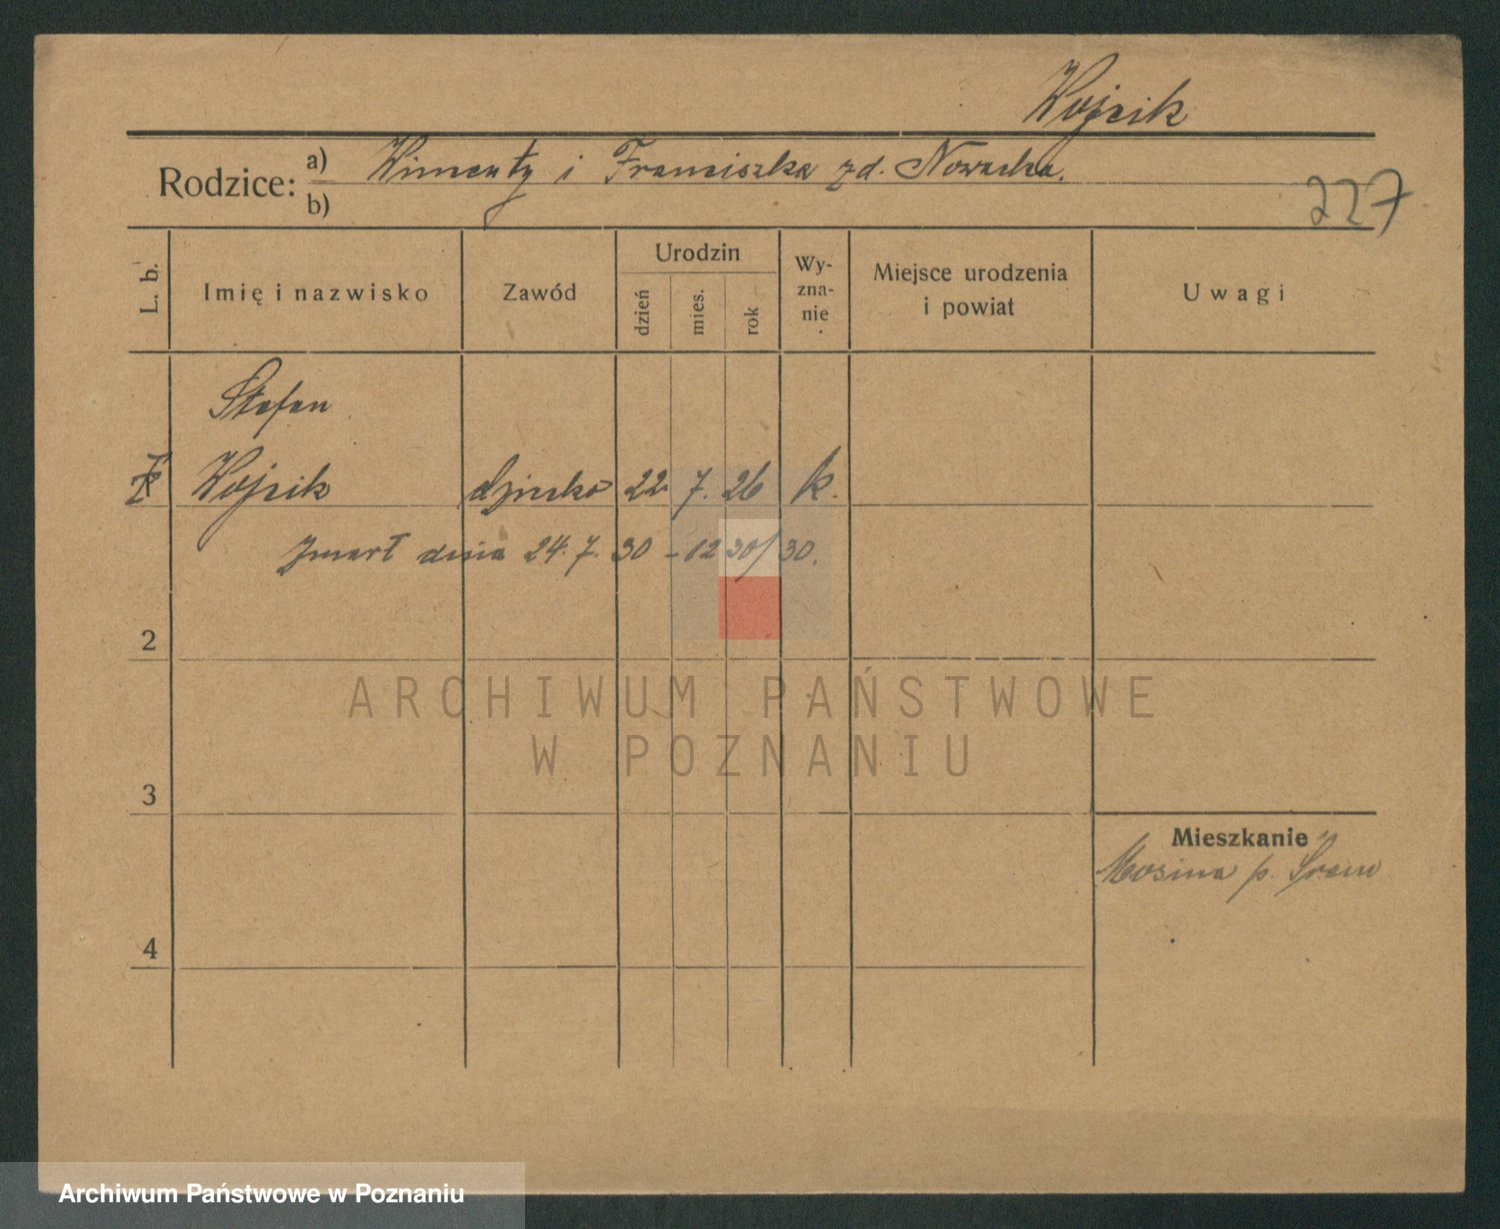 Wojcik
Rodzice: a) Wincenty i Franciszka zd. Nowacka.
b)
227
L. b.
Imię i nazwisko
Zawód
Urodzin
dzień
mies.
rok
Wy-
zna-
nie
Miejsce urodzenia
i powiat
Uwagi
Stefan
Wojcik dziecko 22. 7. 26 k.
Zmarł dnia 24. 7. 30 - 1230/30.
2
3
4
Mieszkanie
Mosina p. Śrem
ARCHIWUM PAŃSTWOWE
W POZNANIU
Archiwum Państwowe w Poznaniu